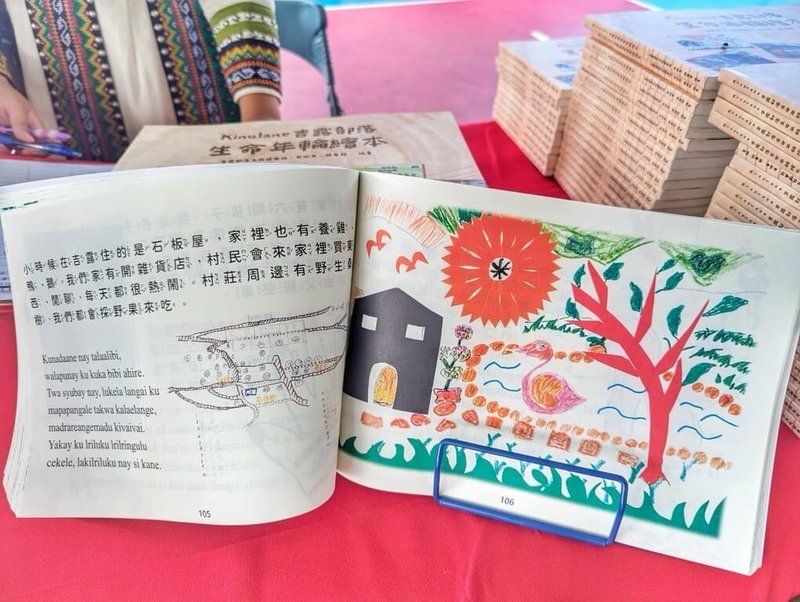 Kinulane 吉露部落
生命年輪繪本
小時候在吉露住的是石板屋，家裡也有養雞、
鴨、鵝。我們家有開雜貨店，村民會來家裡買東
西、閒聊，每天都很熱鬧。村莊周邊有野生桑
樹，我們都會採野果來吃。
Kunadaane nay talaalibi,
walapunay ku kuka bibi ahire.
Twa syubay nay, lukela langai ku
mapapangale takwa kalaelange,
madrareangemadu kivaivai.
Yakay ku lriluku lrilringulu
cekele, lakilriluku nay si kane.
105
106